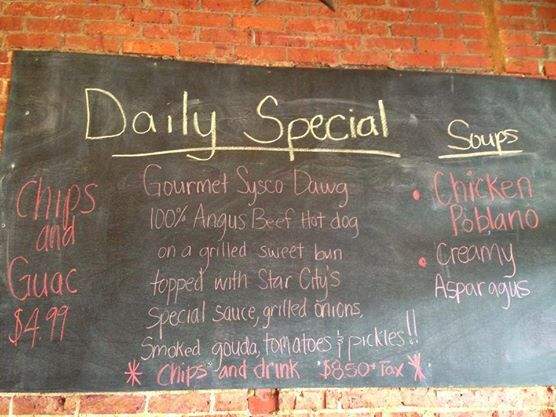 Daily Special
Gourmet Sysco Dawg
100% Angus Beef Hot dog
on a grilled sweet bun
topped with Star City's
Special sauce, grilled onions,
Smoked gouda, tomatoes & pickles!!
* Chips and drink $8.50 + Tax *
Chips
and
Guac
$4.99
Soups
• Chicken
Poblano
• Creamy
Asparagus